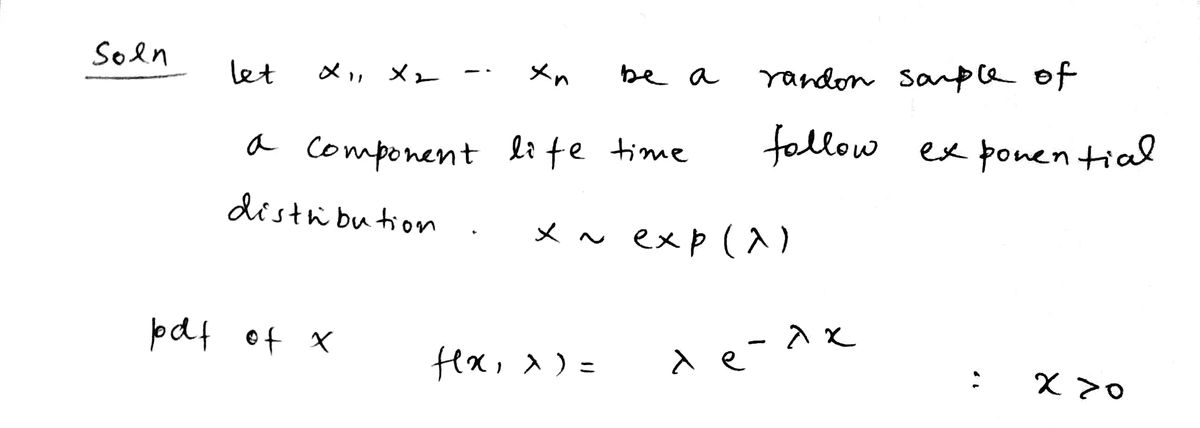 Soln
let x₁, x₂ -- xₙ be a randon sample of
a component life time follow exponential
distribution . x ~ exp(λ)
pdf of x f(x, λ) = λ e^{-λx} : x >0